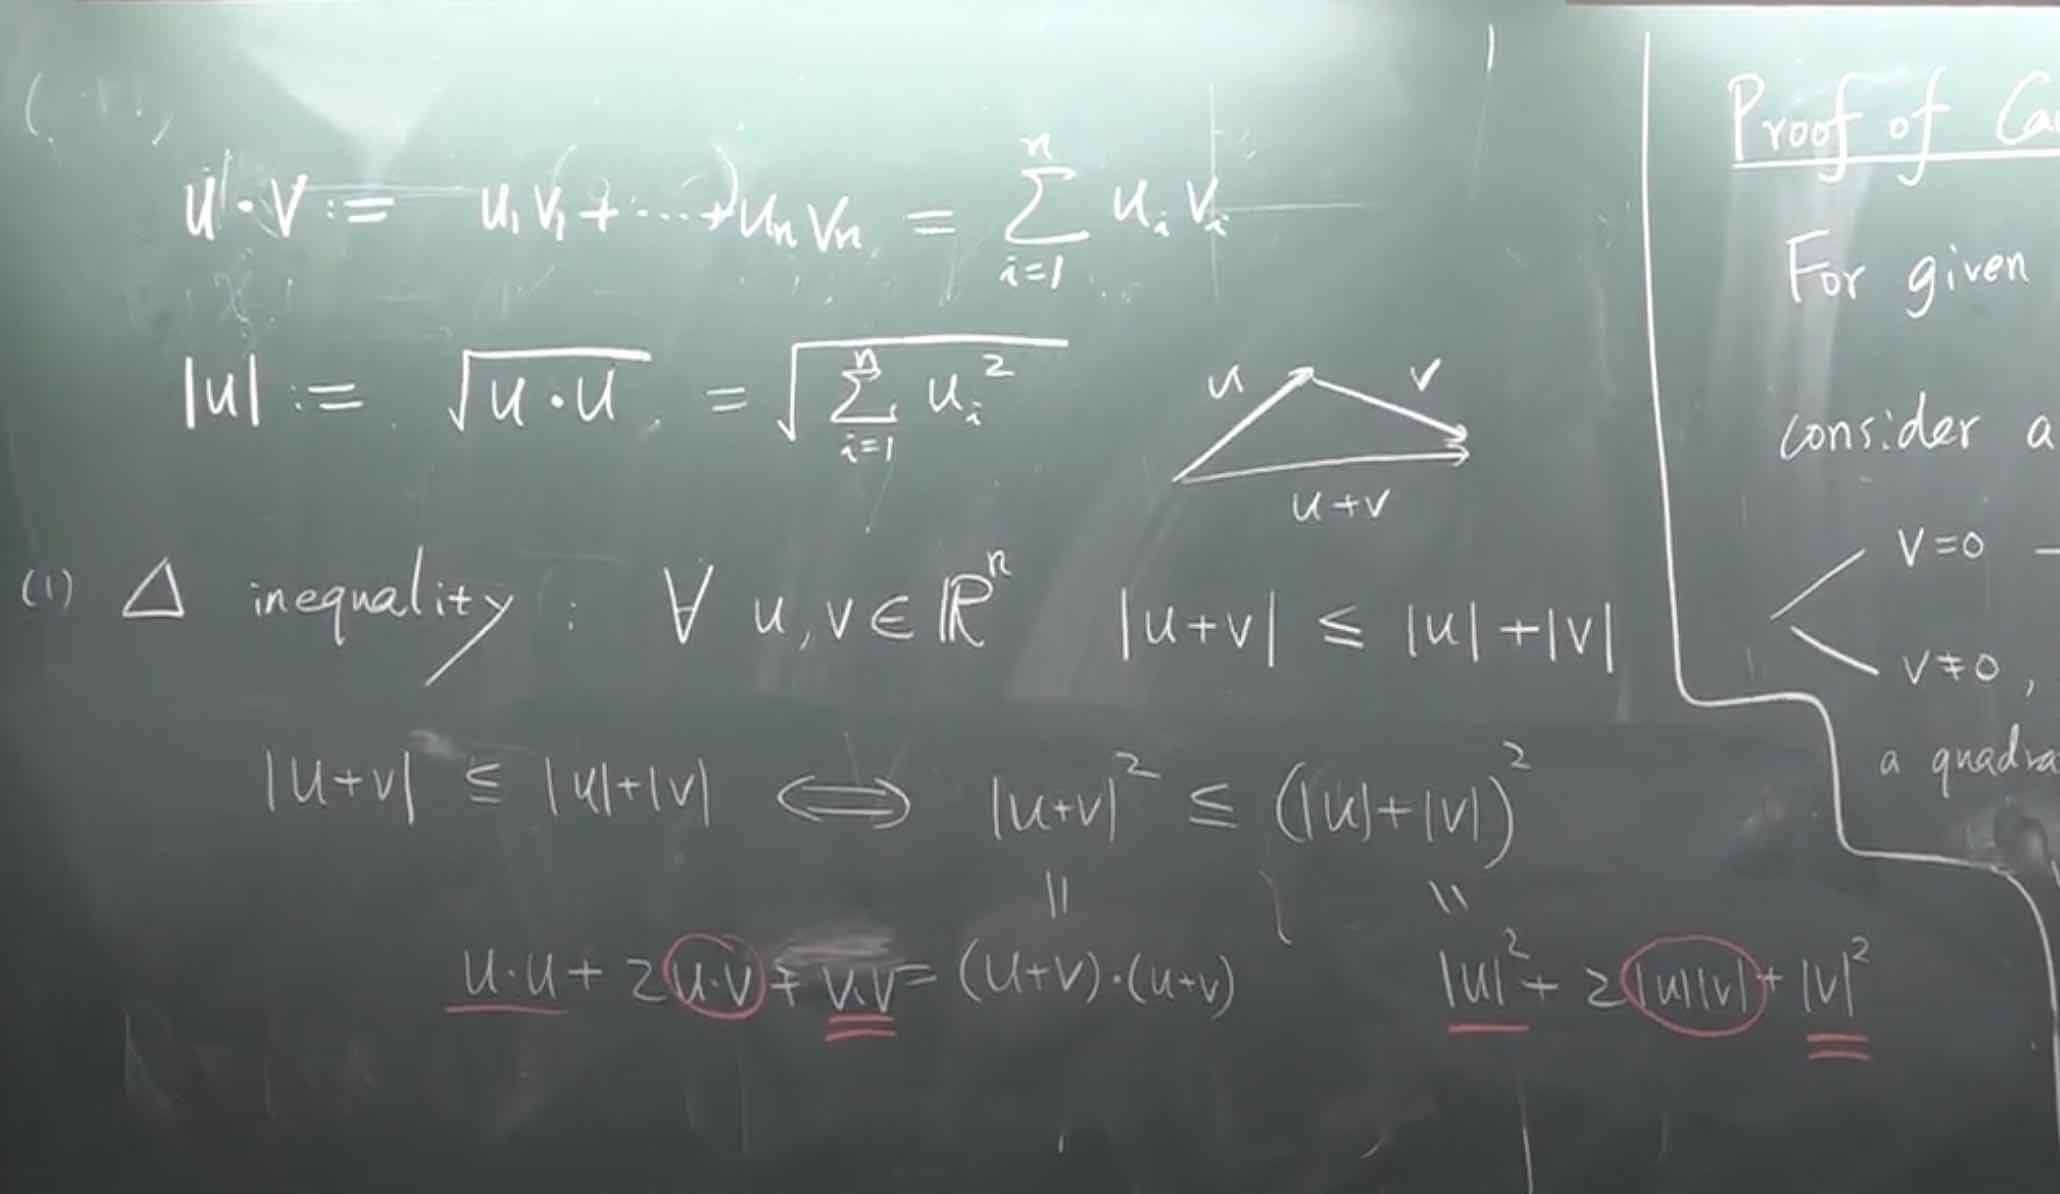 u·v := u₁v₁+···+uₙvₙ = ∑ᵢ₌₁ⁿ uᵢvᵢ
|u| := √(u·u) = √(∑ᵢ₌₁ⁿ uᵢ²)
u v
u+v
(1) △ inequality : ∀ u,v∈ℝⁿ |u+v| ≤ |u|+|v|
|u+v| ≤ |u|+|v| ⟺ |u+v|² ≤ (|u|+|v|)²
|| ||
u·u + 2u·v + v·v = (u+v)·(u+v) |u|² + 2|u||v| + |v|²
Proof of
For given
consider a
v=0 –
v≠0 ,
a